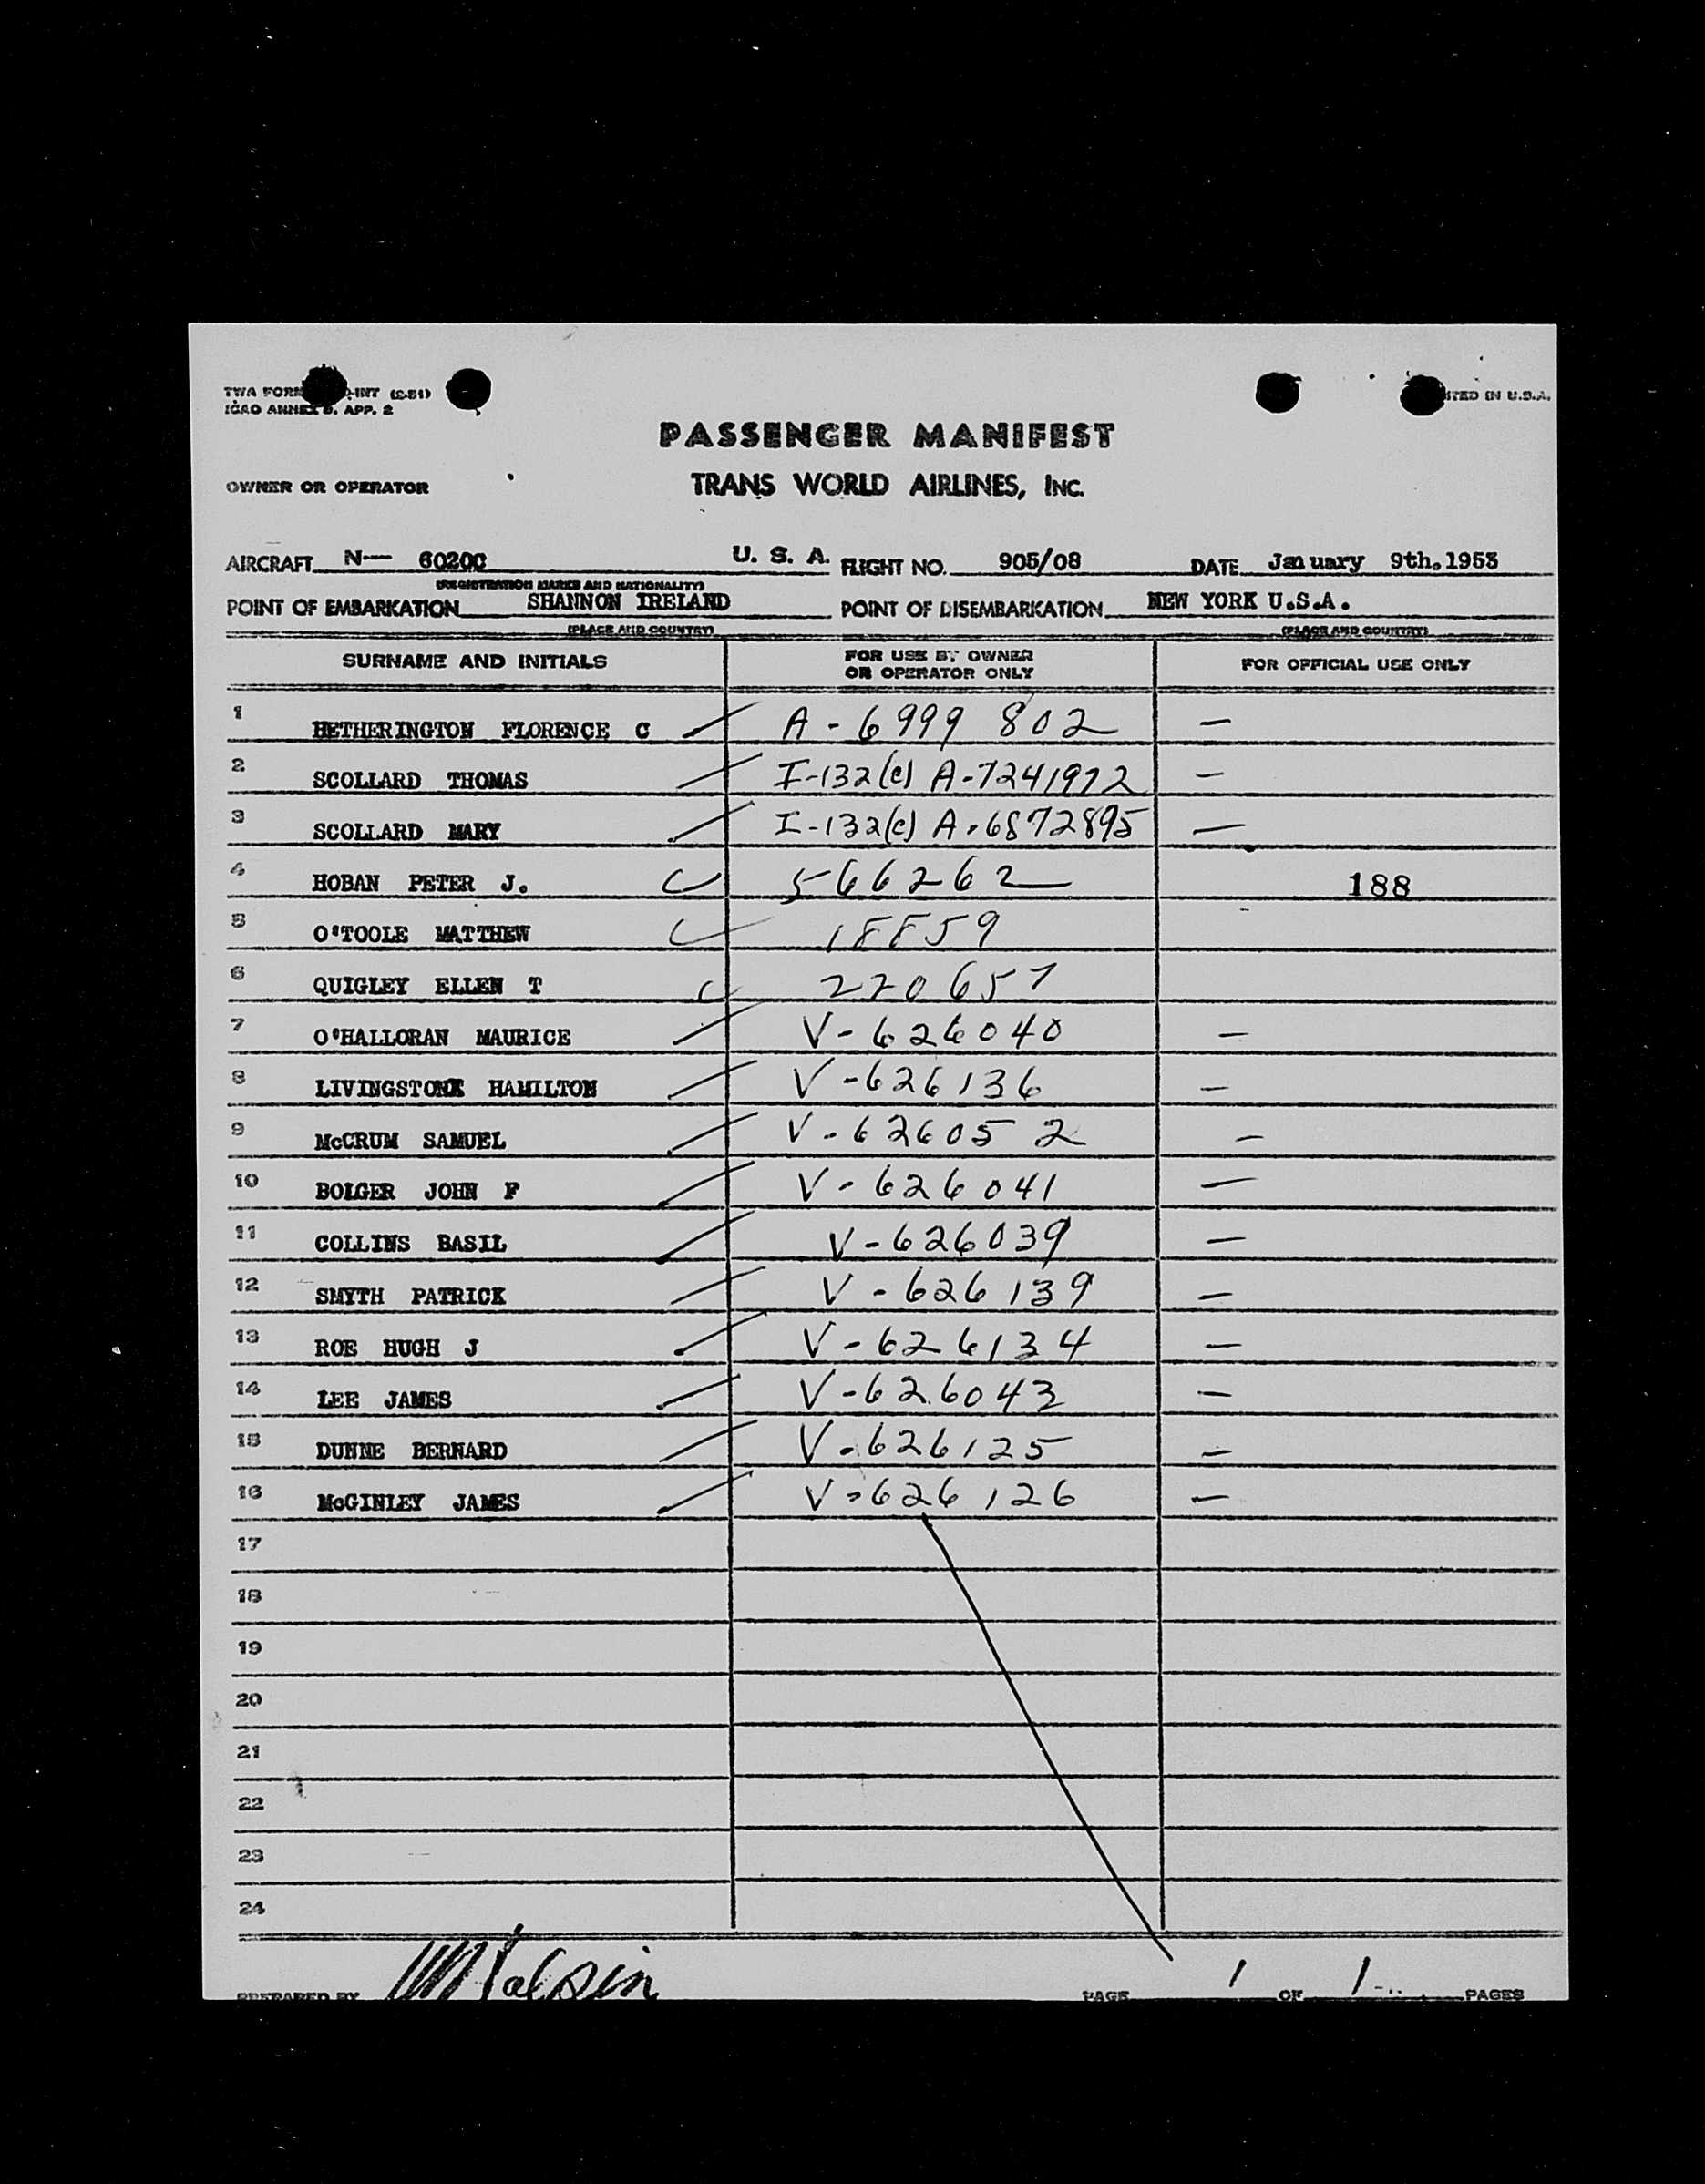 TWA FORM -INT (2-51) ITED IN U.S.A.
ICAO ANNEX 9, APP. 2
PASSENGER MANIFEST
OWNER OR OPERATOR TRANS WORLD AIRLINES, INC.
AIRCRAFT N— 6020C U. S. A. FLIGHT NO. 905/08 DATE January 9th.1953
(REGISTRATION MARKS AND NATIONALITY)
POINT OF EMBARKATION SHANNON IRELAND POINT OF DISEMBARKATION NEW YORK U.S.A.
(PLACE AND COUNTRY) (PLACE AND COUNTRY)
SURNAME AND INITIALS FOR USE BY OWNER OR OPERATOR ONLY FOR OFFICIAL USE ONLY
1 HETHERINGTON FLORENCE C A-6999 802 —
2 SCOLLARD THOMAS I-132(c) A-7241972 —
3 SCOLLARD MARY I-132(c) A-6872895 —
4 HOBAN PETER J. 566262 188
5 O'TOOLE MATTHEW 18859
6 QUIGLEY ELLEN T 220657
7 O'HALLORAN MAURICE V-626040 —
8 LIVINGSTONE HAMILTON V-626136 —
9 McCRUM SAMUEL V-626052 —
10 BOLGER JOHN F V-626041 —
11 COLLINS BASIL V-626039 —
12 SMYTH PATRICK V-626139 —
13 ROE HUGH J V-626134 —
14 LEE JAMES V-626043 —
15 DUNNE BERNARD V-626125 —
16 McGINLEY JAMES V-626126 —
17
18
19
20
21
22
23
24
PREPARED BY PAGE 1 OF 1 PAGES